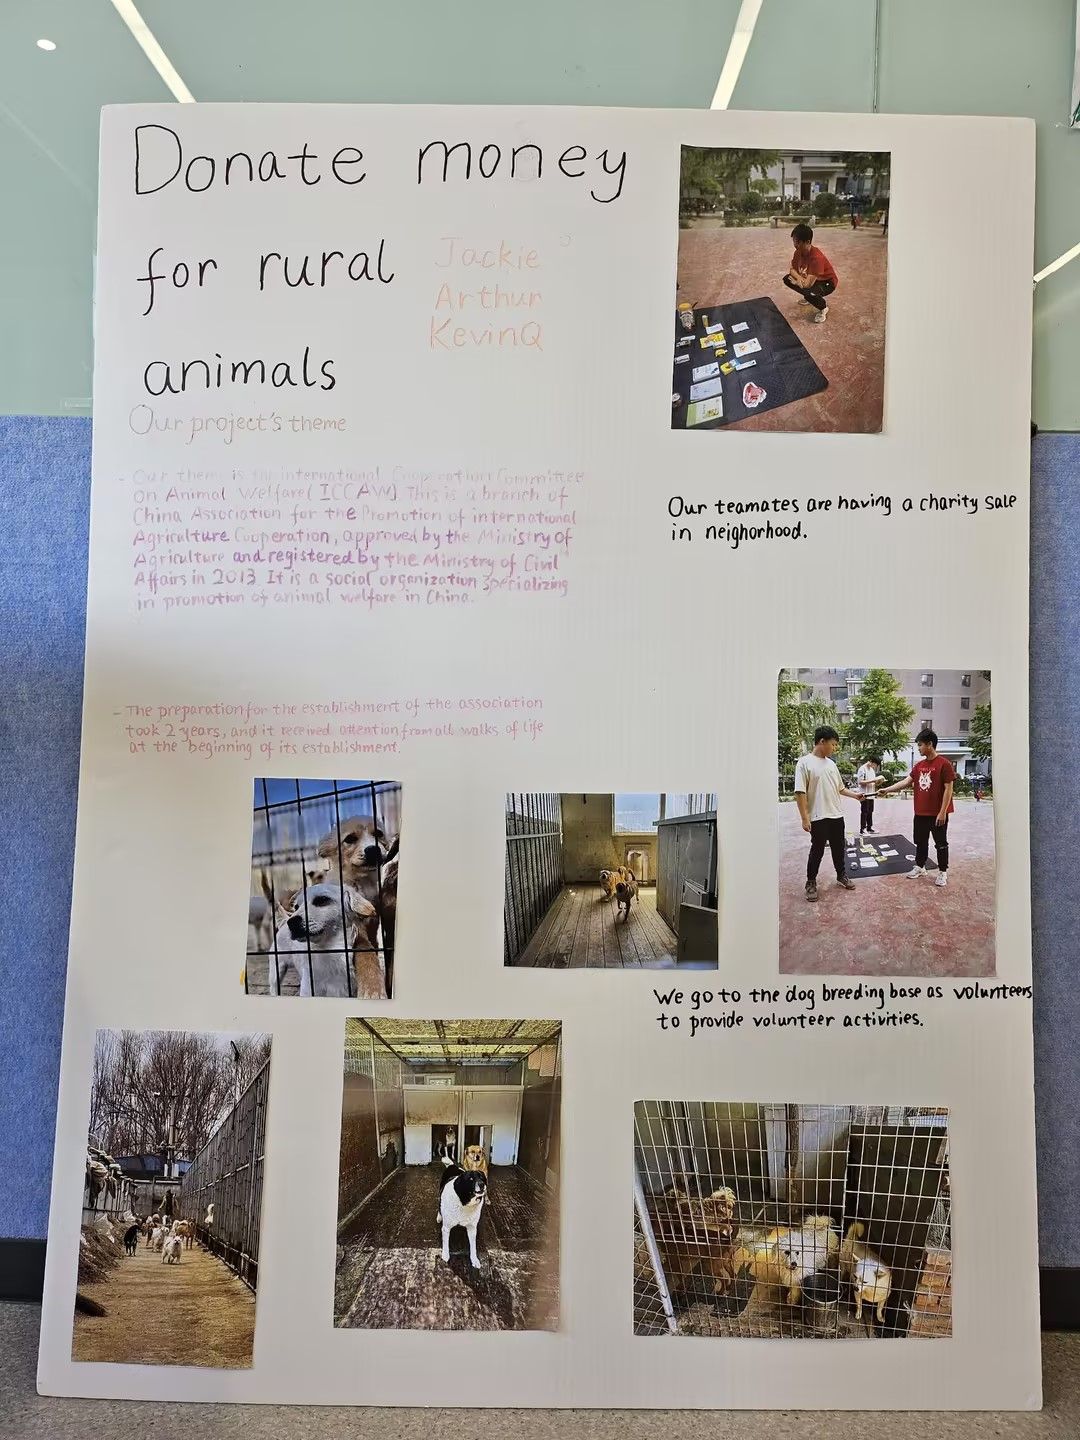 Donate money
for rural
animals
Jackie
Arthur
KevinQ
Our project's theme
- Our theme is the international Cooperation Committee
On Animal Welfare(ICCAW). This is a branch of
China Association for the Promotion of international
Agriculture Cooperation, approved by the Ministry of
Agriculture and registered by the Ministry of Civil
Affairs in 2013. It is a social organization specializing
in promotion of animal welfare in China.
- The preparation for the establishment of the association
took 2 years, and it received attention from all walks of life
at the beginning of its establishment.
Our teamates are having a charity sale
in neighorhood.
We go to the dog breeding base as volunteers
to provide volunteer activities.